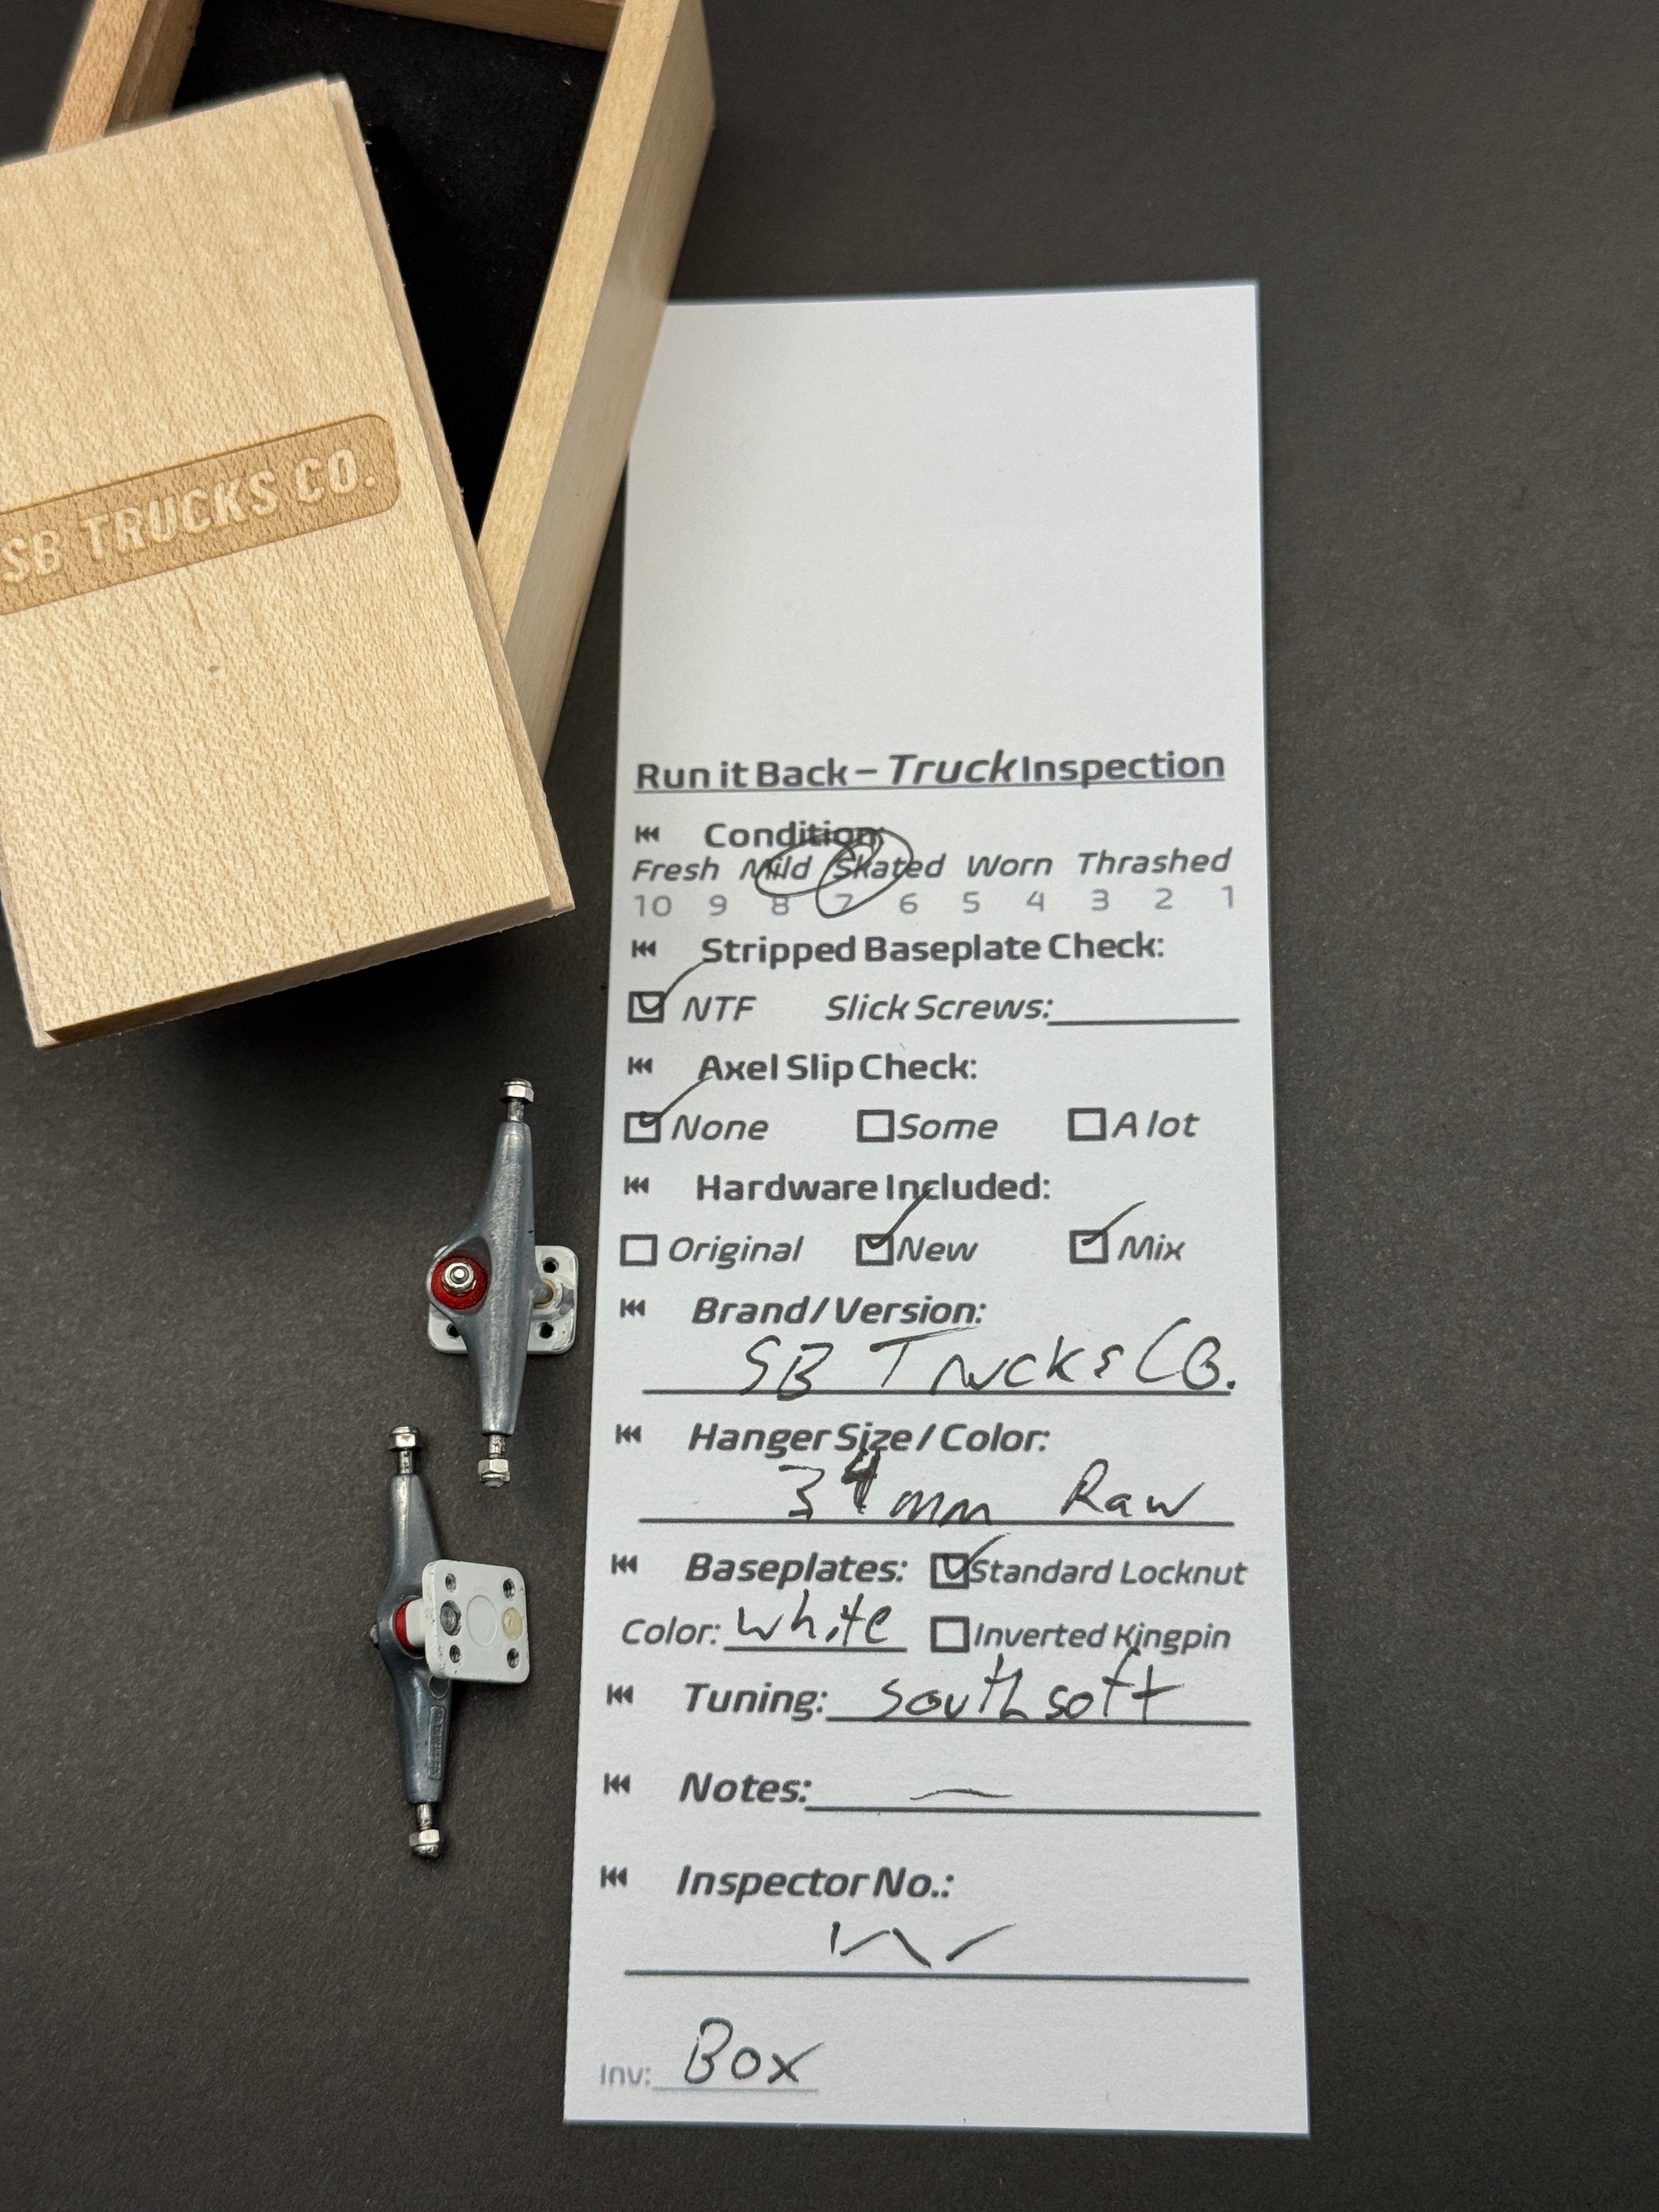 SB TRUCKS CO.
Run it Back – Truck Inspection
Condition:
Fresh Mild Skated Worn Thrashed
10 9 8 7 6 5 4 3 2 1
Stripped Baseplate Check:
NTF Slick Screws:
Axel Slip Check:
None Some A lot
Hardware Included:
Original New Mix
Brand / Version:
SB Trucks Co.
Hanger Size / Color:
34mm Raw
Baseplates: Standard Locknut
Color: white Inverted Kingpin
Tuning: south soft
Notes: —
Inspector No.:
Inv: Box